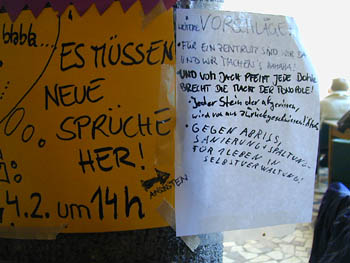 blabla...
ES MÜSSEN
NEUE
SPRÜCHE
HER!
4.2. um 14h
ANSONSTEN
WEITERE VORSCHLÄGE:
• FÜR EIN ZENTRUM SIND WIR DA
UND WIR MACHEN'S AHAHA!
• UND VOM DACH PFEIFT JEDE DOHLE
BRECHT DIE MACHT DER MONOPOLE!
• Jeder Stein der abgerissen,
wird von uns zurückgeschmissen!
• GEGEN ABRISS,
SANIERUNG + SPALTUNG-
FÜR 1 LEBEN IN
SELBSTVERWALTUNG!